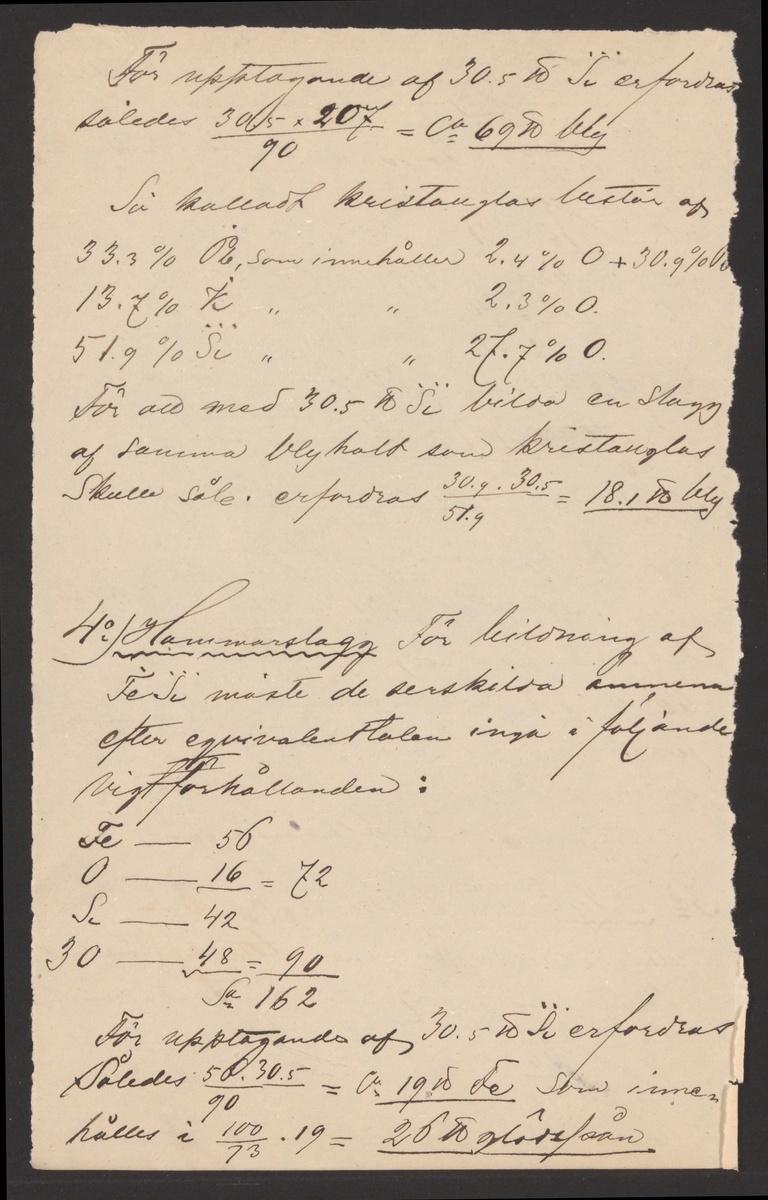 För upptagande af 30.5 ℔ S̈̇i erfordras
således 30.5 × 207 / 90 = Ca 69 ℔ bly
Så kalladt kristallglas består af
33.3 % Ṗb, som innehåller 2.4 % O + 30.9 % Pb
13.7 % K̇ " " 2.3 % O.
51.9 % S̈̇i " " 27.7 % O.
För att med 30.5 ℔ S̈̇i bilda en slagg
af samma blyhalt som kristallglas
skulle såle. erfordras 30.9 . 30.5 / 51.9 = 18.1 ℔ bly
4o) Hammarslagg För bildning af
ḞeS̈̇i måste de serskilda ämnena
efter eqvivalenttalen ingå i följande
vigtförhållanden :
Fe — 56
O — 16 = 72
Si — 42
3O — 48 = 90
Sa 162
För upptagande af 30.5 ℔ S̈̇i erfordras
således 56 . 30.5 / 90 = Ca 19 ℔ Fe som inne-
hålles i 100 / 73 . 19 = 26 ℔ glödspån